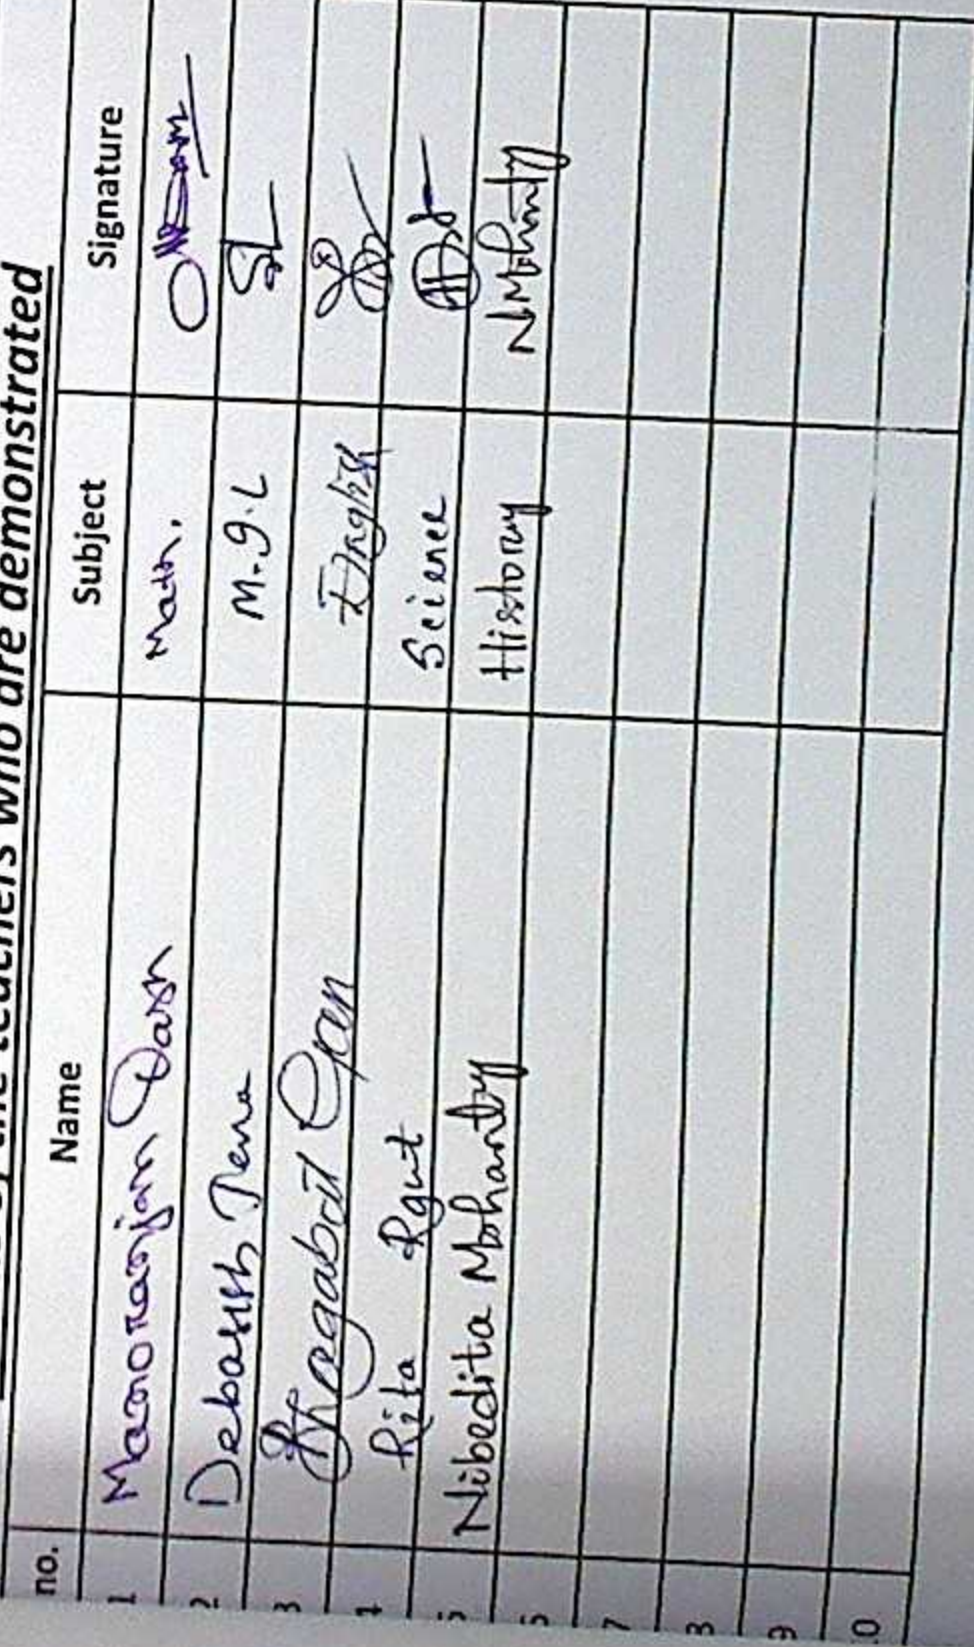 the teachers who are demonstrated
no. Name Subject Signature
1 Manoranjan Dash Math.
2 Debasish Jena M.I.L
3 Bhagabat English
4 Rita Rout Science
5 Nibedita Mohanty History NMohanty
6
7
8
9
10